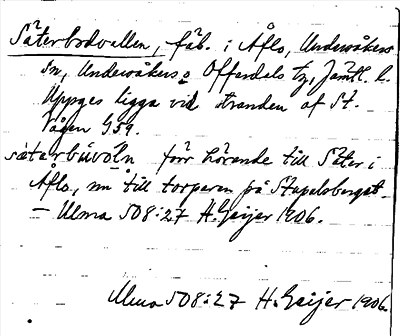 Säterbodvallen, fäb. i Åflo, Undersåkers
sn, Undersåkers o Offerdals tg, Jämtl. l.
Uppges ligga vid stranden af St.
Vågen G59.
säterbùvòln förr hörande till Säter i
Åflo, nu till torparen på Stapelsberget.
— Ulma 508:27 H. Geijer 1906.
Ulma 508:27 H. Geijer 1906.